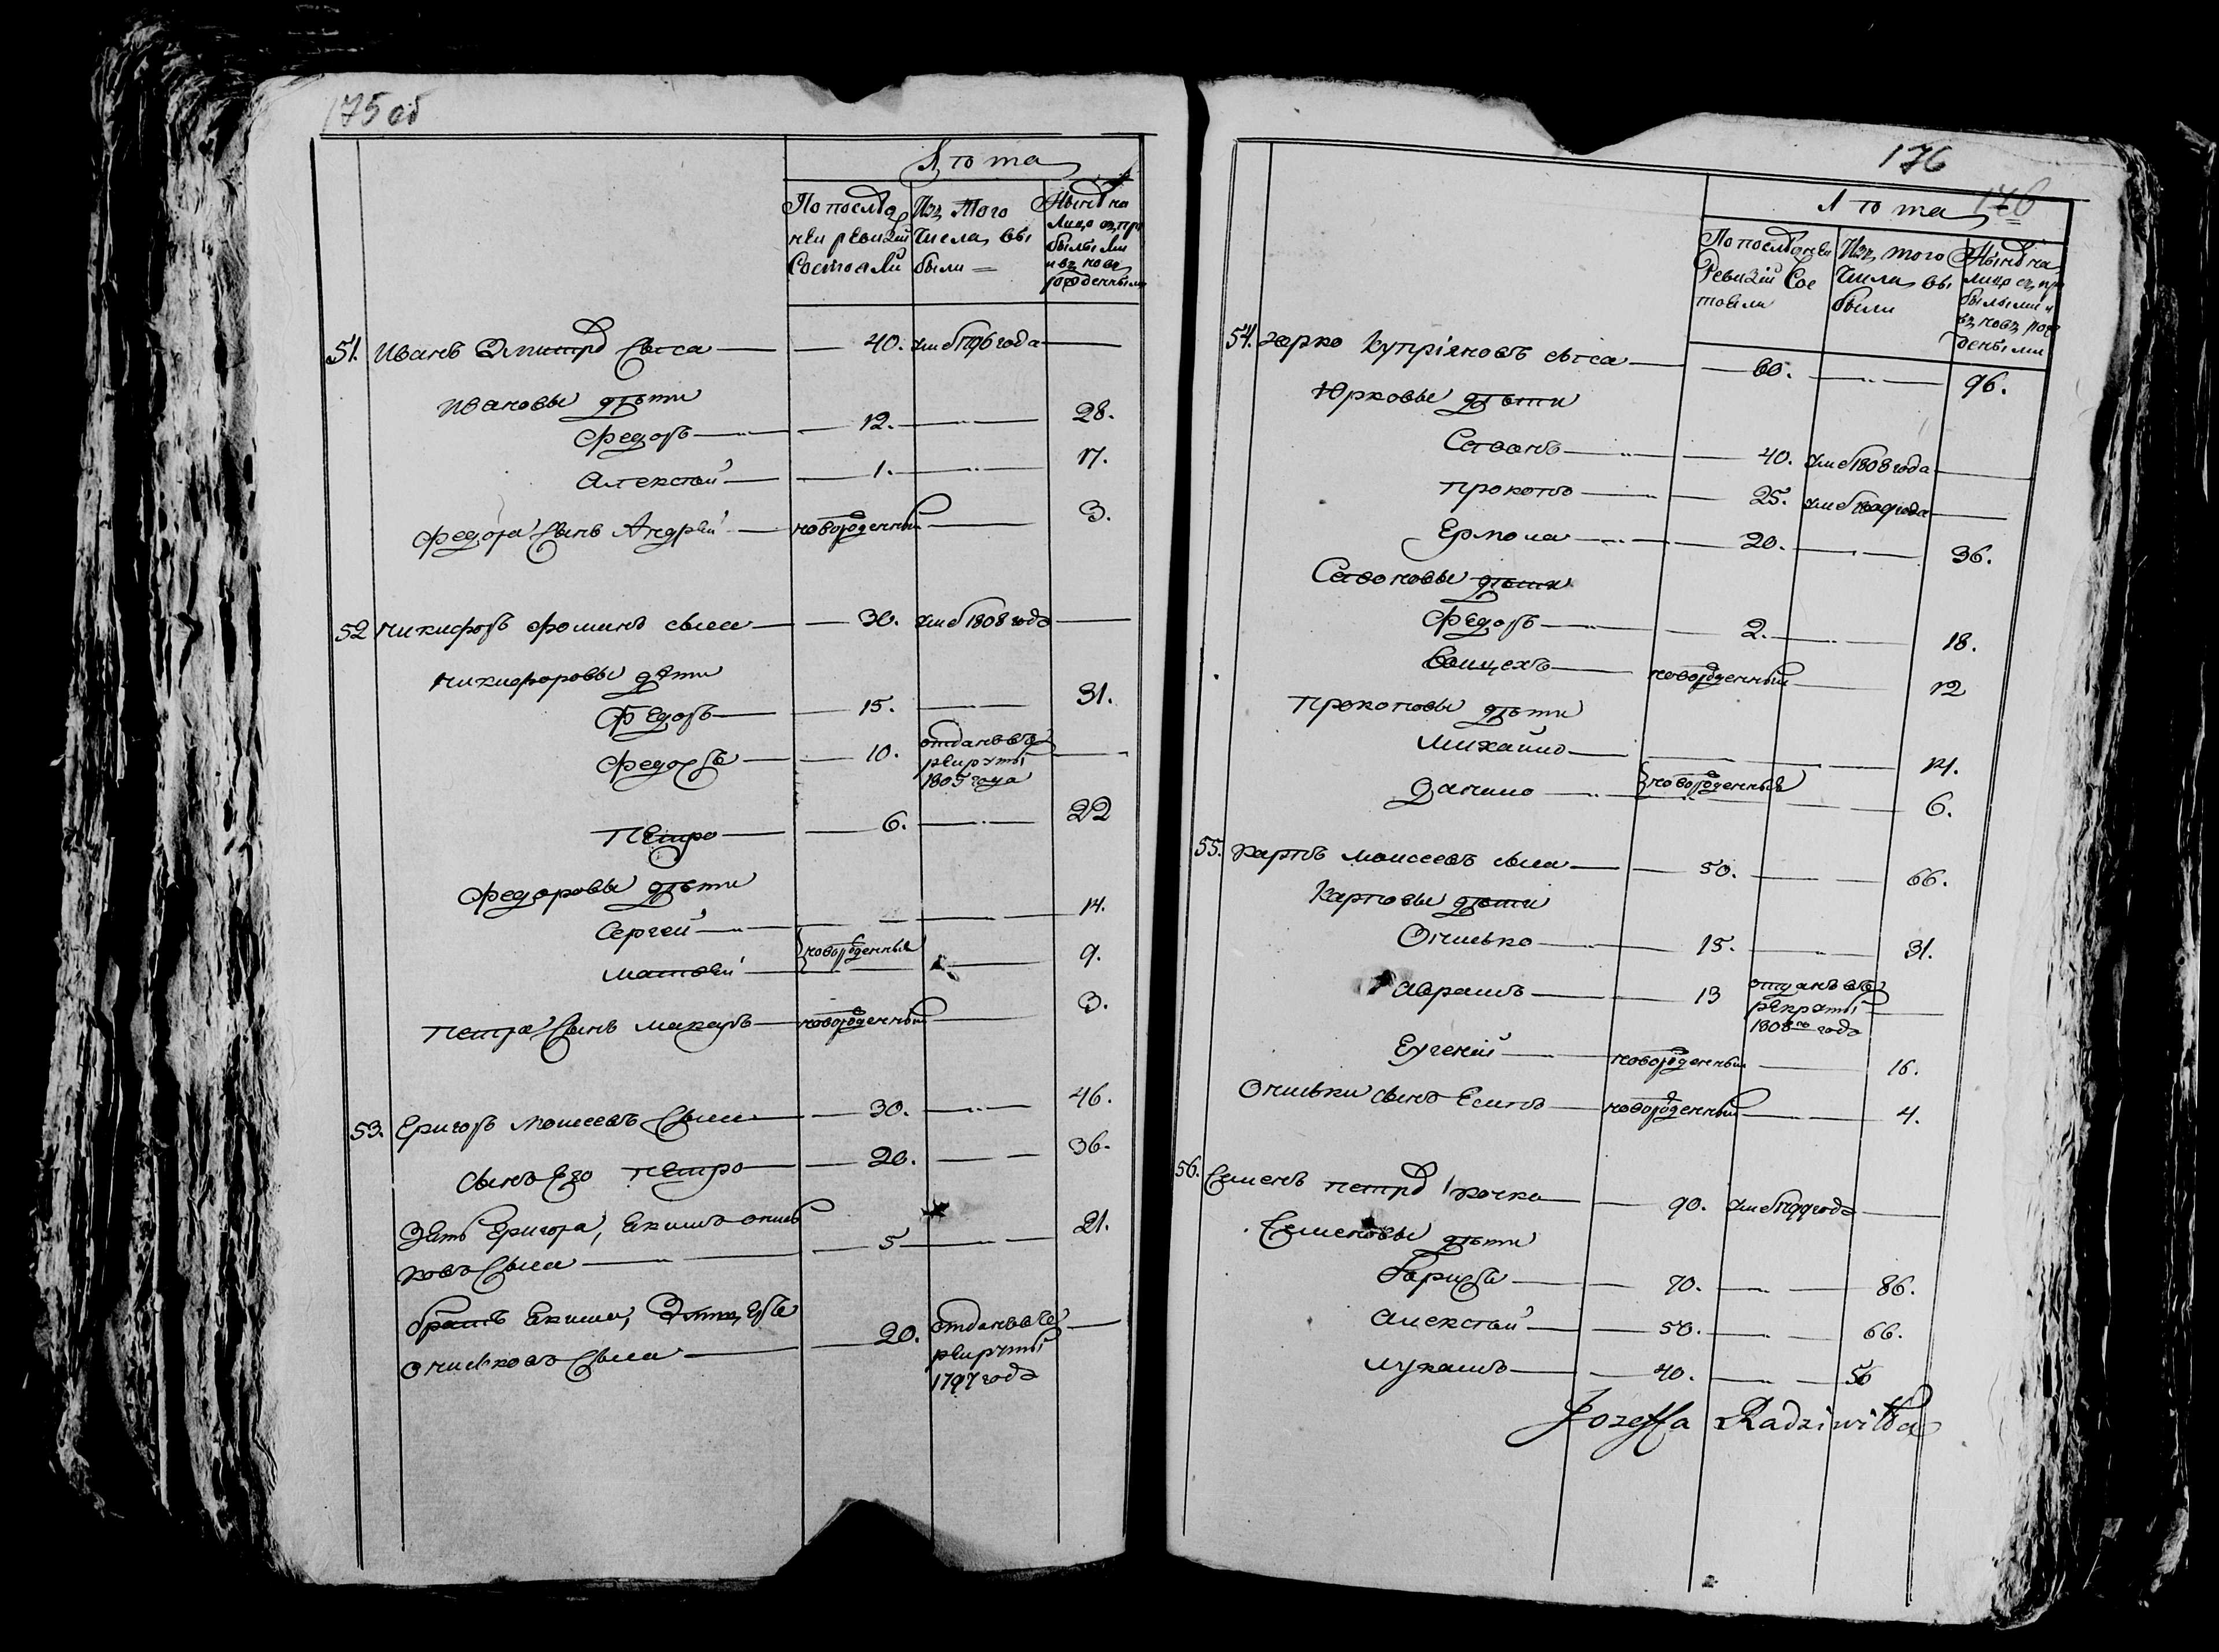 175 об
Лѣта
По послѣд
ней ревизии
Состояли
Изъ Того
Числа, вы
были =
Нынѣ на
лицо съ при
былыми
и въ новь
рожденными
51. Иванъ Дмитровъ Сыса 40. умеръ 1796 года
Ивановы дѣти
Федоръ 12. 28.
Алексѣй 1. 17.
Федора Сынъ Андрей новорожденный 3.
52 Никифоръ Фоминъ сыса 30. умеръ 1808 года
Никифоровы дѣти
Федоръ 15. 31.
Федоръ 10. отданъ въ
рекруты
1805 года
Петро 6. 22
Федоровы дѣти
Сергей 14.
новорожденные
Матвѣй 9.
Петра Сынъ Макаръ новорожденный 3.
53. Григоръ Моисеевъ Сыса 30. 46.
Сынъ Его Петро 20. 36.
Зять Григора, Якимъ Онись
ковъ Сыса 5 21.
братъ Якима,
Ониськовъ Сыса 20. отданъ въ
рекруты
1797 года
176
176
Лѣта
По послѣдней
Ревизии Сос
тояли
Изъ того
Числа, вы
были
Нынѣ на
лицо съ при
былыми и
въ новь рож
денными
54. Юрко Купріяновъ сыса 80. 96.
Юрковы дѣти
Савонъ 40. умеръ 1808 года
Прокопъ 25. умеръ 1809 года
Ермола 20. 36.
Савоновы дѣти
Федоръ 2. 18.
Войцехъ новорожденный 12
Прокоповы дѣти
Михайло 14.
новорожденные
Данило 6.
55. Карпъ Моисеевъ сыса 50. 66.
Карповы дѣти
Онисько 15. 31.
Аврамъ 13 отданъ въ
рекруты
1808го года
Еугеній новорожденный 16.
Ониськи сынъ Есипъ новорожденный 4.
56. Семенъ Петровъ Крочка 90. умеръ 1799 года
Семеновы дѣти
Гаригоръ 70. 86.
Алексѣй 50. 66.
Лукашъ 40. 56
Jozeffa Radziwiłła